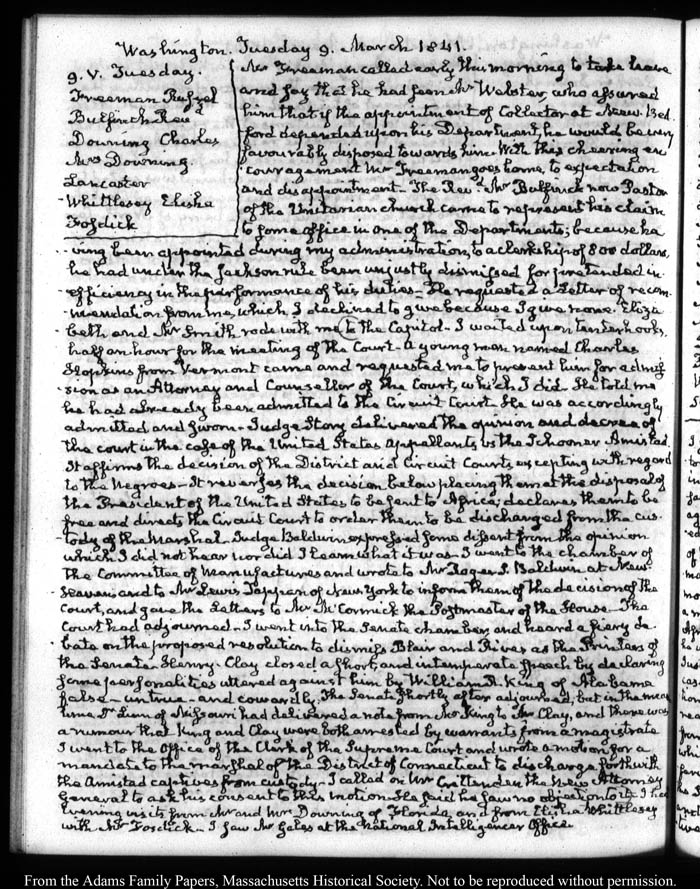 Washington. Tuesday 9. March 1841.
9. V. Tuesday.
Freeman Russel
Bulfinch Revd
Downing Charles
Mrs Downing.
Lancaster
Whittlesey Elisha
Fosdick
Mr Freeman called early this morning to take leave
and say that he had seen Mr Webster, who assured
him that if the appointment of Collector at New-Bed-
ford depended upon his Department, he would be very
favourably disposed towards him. With this chearing en-
couragement Mr Freeman goes home, to expectation
and disappointment. The Revd Mr Bulfinch now Pastor
of the Unitarian church came to represent his claim
to some office in one of the Departments; because ha-
ving been appointed during my administration, to a clerkship of 800 dollars,
he had under the Jackson rule been unjustly dismissed for pretended in-
efficiency in the performance of his duties. He requested a Letter of recom-
mendation from me, which I declined to give because I give none. Eliza-
beth and Mr Smith rode with me to the Capitol. I waited upon tenterhooks
half an hour for the meeting of the Court. A young man named Charles
Hopkins from Vermont came and requested me to present him for admis-
sion as an Attorney and Counsellor of the Court, which I did. He told me
he had already been admitted to the Circuit Court. He was accordingly
admitted and sworn. Judge Story delivered the opinion and decree of
the court in the case of the United States Appellants, vs the Schooner Amistad.
It affirms the decision of the District and Circuit Courts, excepting with regard
to the Negroes. It reverses the decision below placing them at the disposal of
the President of the United States, to be sent to Africa; declares them to be
free and directs the Circuit Court to order them to be discharged from the cus-
tody of the Marshal. Judge Baldwin expressed some dissent from the opinion
which I did not hear nor did I learn what it was. I went to the chamber of
the Committee of Manufactures and wrote to Mr Roger S. Baldwin at New-
Haven, and to Mr Lewis Tappan of New York to inform them of the decision of the
Court, and gave the Letters to Mr McCormick the Postmaster of the House. The
Court had adjourned. I went into the Senate chamber, and heard a fiery de-
bate on the proposed resolution to dismiss Blair and Rives as the Printers of
the Senate. Henry Clay closed a short, and intemperate speech by declaring
some personalities uttered against him by William R. King of Alabama
false, untrue and cowardly. The Senate shortly after adjourned, but in the mean
time Dr Linn of Missouri had delivered a note from Mr King to Mr Clay, and there was
a rumour that King and Clay were both arrested by warrants from a magistrate
I went to the Office of the Clerk of the Supreme Court and wrote a motion for a
mandate to the marshal of the District of Connecticut to discharge forthwith
the Amistad captives from custody. I called on Mr Crittenden the new Attorney
General to ask his consent to this motion. He said he saw no objection to it. I had
Evening visits from Mr and Mrs Downing of Florida, and from Elisha Whittlesey
with Mr Fosdick. I saw Mr Gales at the National Intelligencer Office
From the Adams Family Papers, Massachusetts Historical Society. Not to be reproduced without permission.